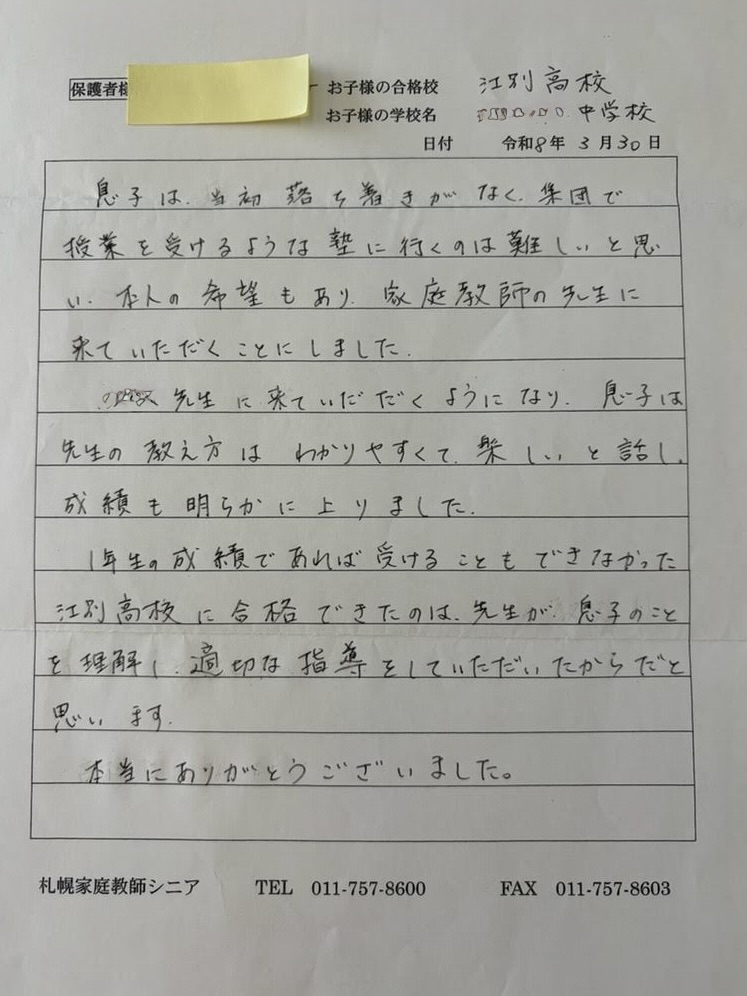 保護者様 お子様の合格校 江別高校
お子様の学校名 中学校
日付 令和8年3月30日
息子は、当初落ち着きがなく、集団で
授業を受けるような塾に行くのは難しいと思
い、本人の希望もあり、家庭教師の先生に
来ていただくことにしました。
先生に来ていだだくようになり、息子は
先生の教え方はわかりやすくて、楽しいと話し、
成績も明らかに上りました。
1年生の成績であれば受けることもできなかった
江別高校に合格できたのは、先生が、息子のこと
を理解し、適切な指導をしていただいたからだと
思います。
本当にありがとうございました。
札幌家庭教師シニア TEL 011-757-8600 FAX 011-757-8603